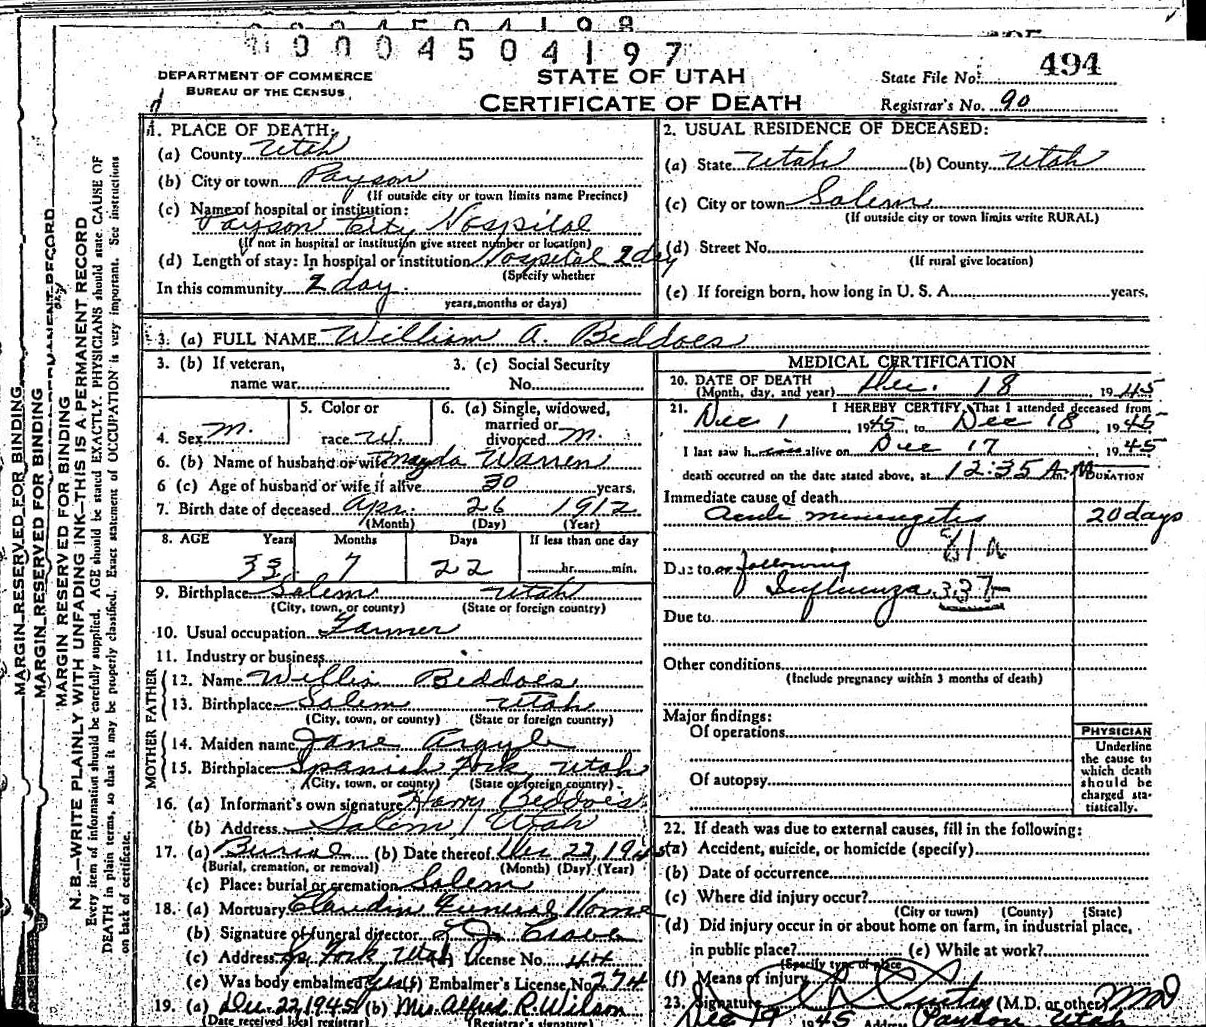 0004504197
DEPARTMENT OF COMMERCE
BUREAU OF THE CENSUS
STATE OF UTAH
CERTIFICATE OF DEATH
State File No. 494
Registrar's No. 90
1. PLACE OF DEATH:
(a) County Utah
(b) City or town Payson
(If outside city or town limits name Precinct)
(c) Name of hospital or institution:
Payson City Hospital
(If not in hospital or institution give street number or location)
(d) Length of stay: In hospital or institution Hospital 2 day
(Specify whether
In this community 2 day.
years, months or days)
2. USUAL RESIDENCE OF DECEASED:
(a) State Utah (b) County Utah
(c) City or town Salem
(If outside city or town limits write RURAL)
(d) Street No.
(If rural give location)
(e) If foreign born, how long in U. S. A. years.
3. (a) FULL NAME William A. Beddoes
3. (b) If veteran, name war
3. (c) Social Security No.
4. Sex M.
5. Color or race W.
6. (a) Single, widowed, married or divorced M.
6. (b) Name of husband or wife Magda Warren
6 (c) Age of husband or wife if alive 30 years.
7. Birth date of deceased Apr. 26 1912
(Month) (Day) (Year)
8. AGE Years Months Days If less than one day
33 7 22 hr. min.
9. Birthplace Salem Utah
(City, town, or county) (State or foreign country)
10. Usual occupation Farmer
11. Industry or business
FATHER
12. Name Willis Beddoes
13. Birthplace Salem Utah
(City, town, or county) (State or foreign country)
MOTHER
14. Maiden name Jane Argyle
15. Birthplace Spanish Fork, Utah
(City, town, or county) (State or foreign country)
16. (a) Informant's own signature Harry Beddoes
(b) Address Salem, Utah
17. (a) Burial (b) Date thereof Dec 22, 1945
(Burial, cremation, or removal) (Month) (Day) (Year)
(c) Place: burial or cremation Salem
18. (a) Mortuary Claudin Funeral Home
(b) Signature of funeral director
(c) Address Sp Fork, Utah License No. 44
(e) Was body embalmed Embalmer's License No. 274
19. (a) Dec. 22, 1945 (b) Mrs. Alfred R. Wilson
(Date received local registrar) (Registrar's signature)
MEDICAL CERTIFICATION
20. DATE OF DEATH
(Month, day, and year) Dec. 18 1945
21. I HEREBY CERTIFY, That I attended deceased from
Dec 1 1945, to Dec 18 1945
I last saw him alive on Dec 17 1945
death occurred on the date stated above, at 12:35 A.M.
DURATION
Immediate cause of death
Acute meningetis 20 days
81a
Due to or following
Influenza 33
Due to
Other conditions
(Include pregnancy within 3 months of death)
Major findings:
Of operations
Of autopsy
PHYSICIAN
Underline
the cause to
which death
should be
charged sta-
tistically.
22. If death was due to external causes, fill in the following:
(a) Accident, suicide, or homicide (specify)
(b) Date of occurrence
(c) Where did injury occur?
(City or town) (County) (State)
(d) Did injury occur in or about home on farm, in industrial place,
in public place? (e) While at work?
(Specify type of place)
(f) Means of injury
23. Signature (M.D. or other) MD
Dec 19 1945 Address Payson Utah
MARGIN RESERVED FOR BINDING
MARGIN RESERVED FOR BINDING
MARGIN RESERVED FOR BINDING
N. B.—WRITE PLAINLY WITH UNFADING INK—THIS IS A PERMANENT RECORD
Every item of information should be carefully supplied. AGE should be stated EXACTLY. PHYSICIANS should state CAUSE OF
DEATH in plain terms, so that it may be properly classified. Exact statement of OCCUPATION is very important. See instructions
on back of certificate.